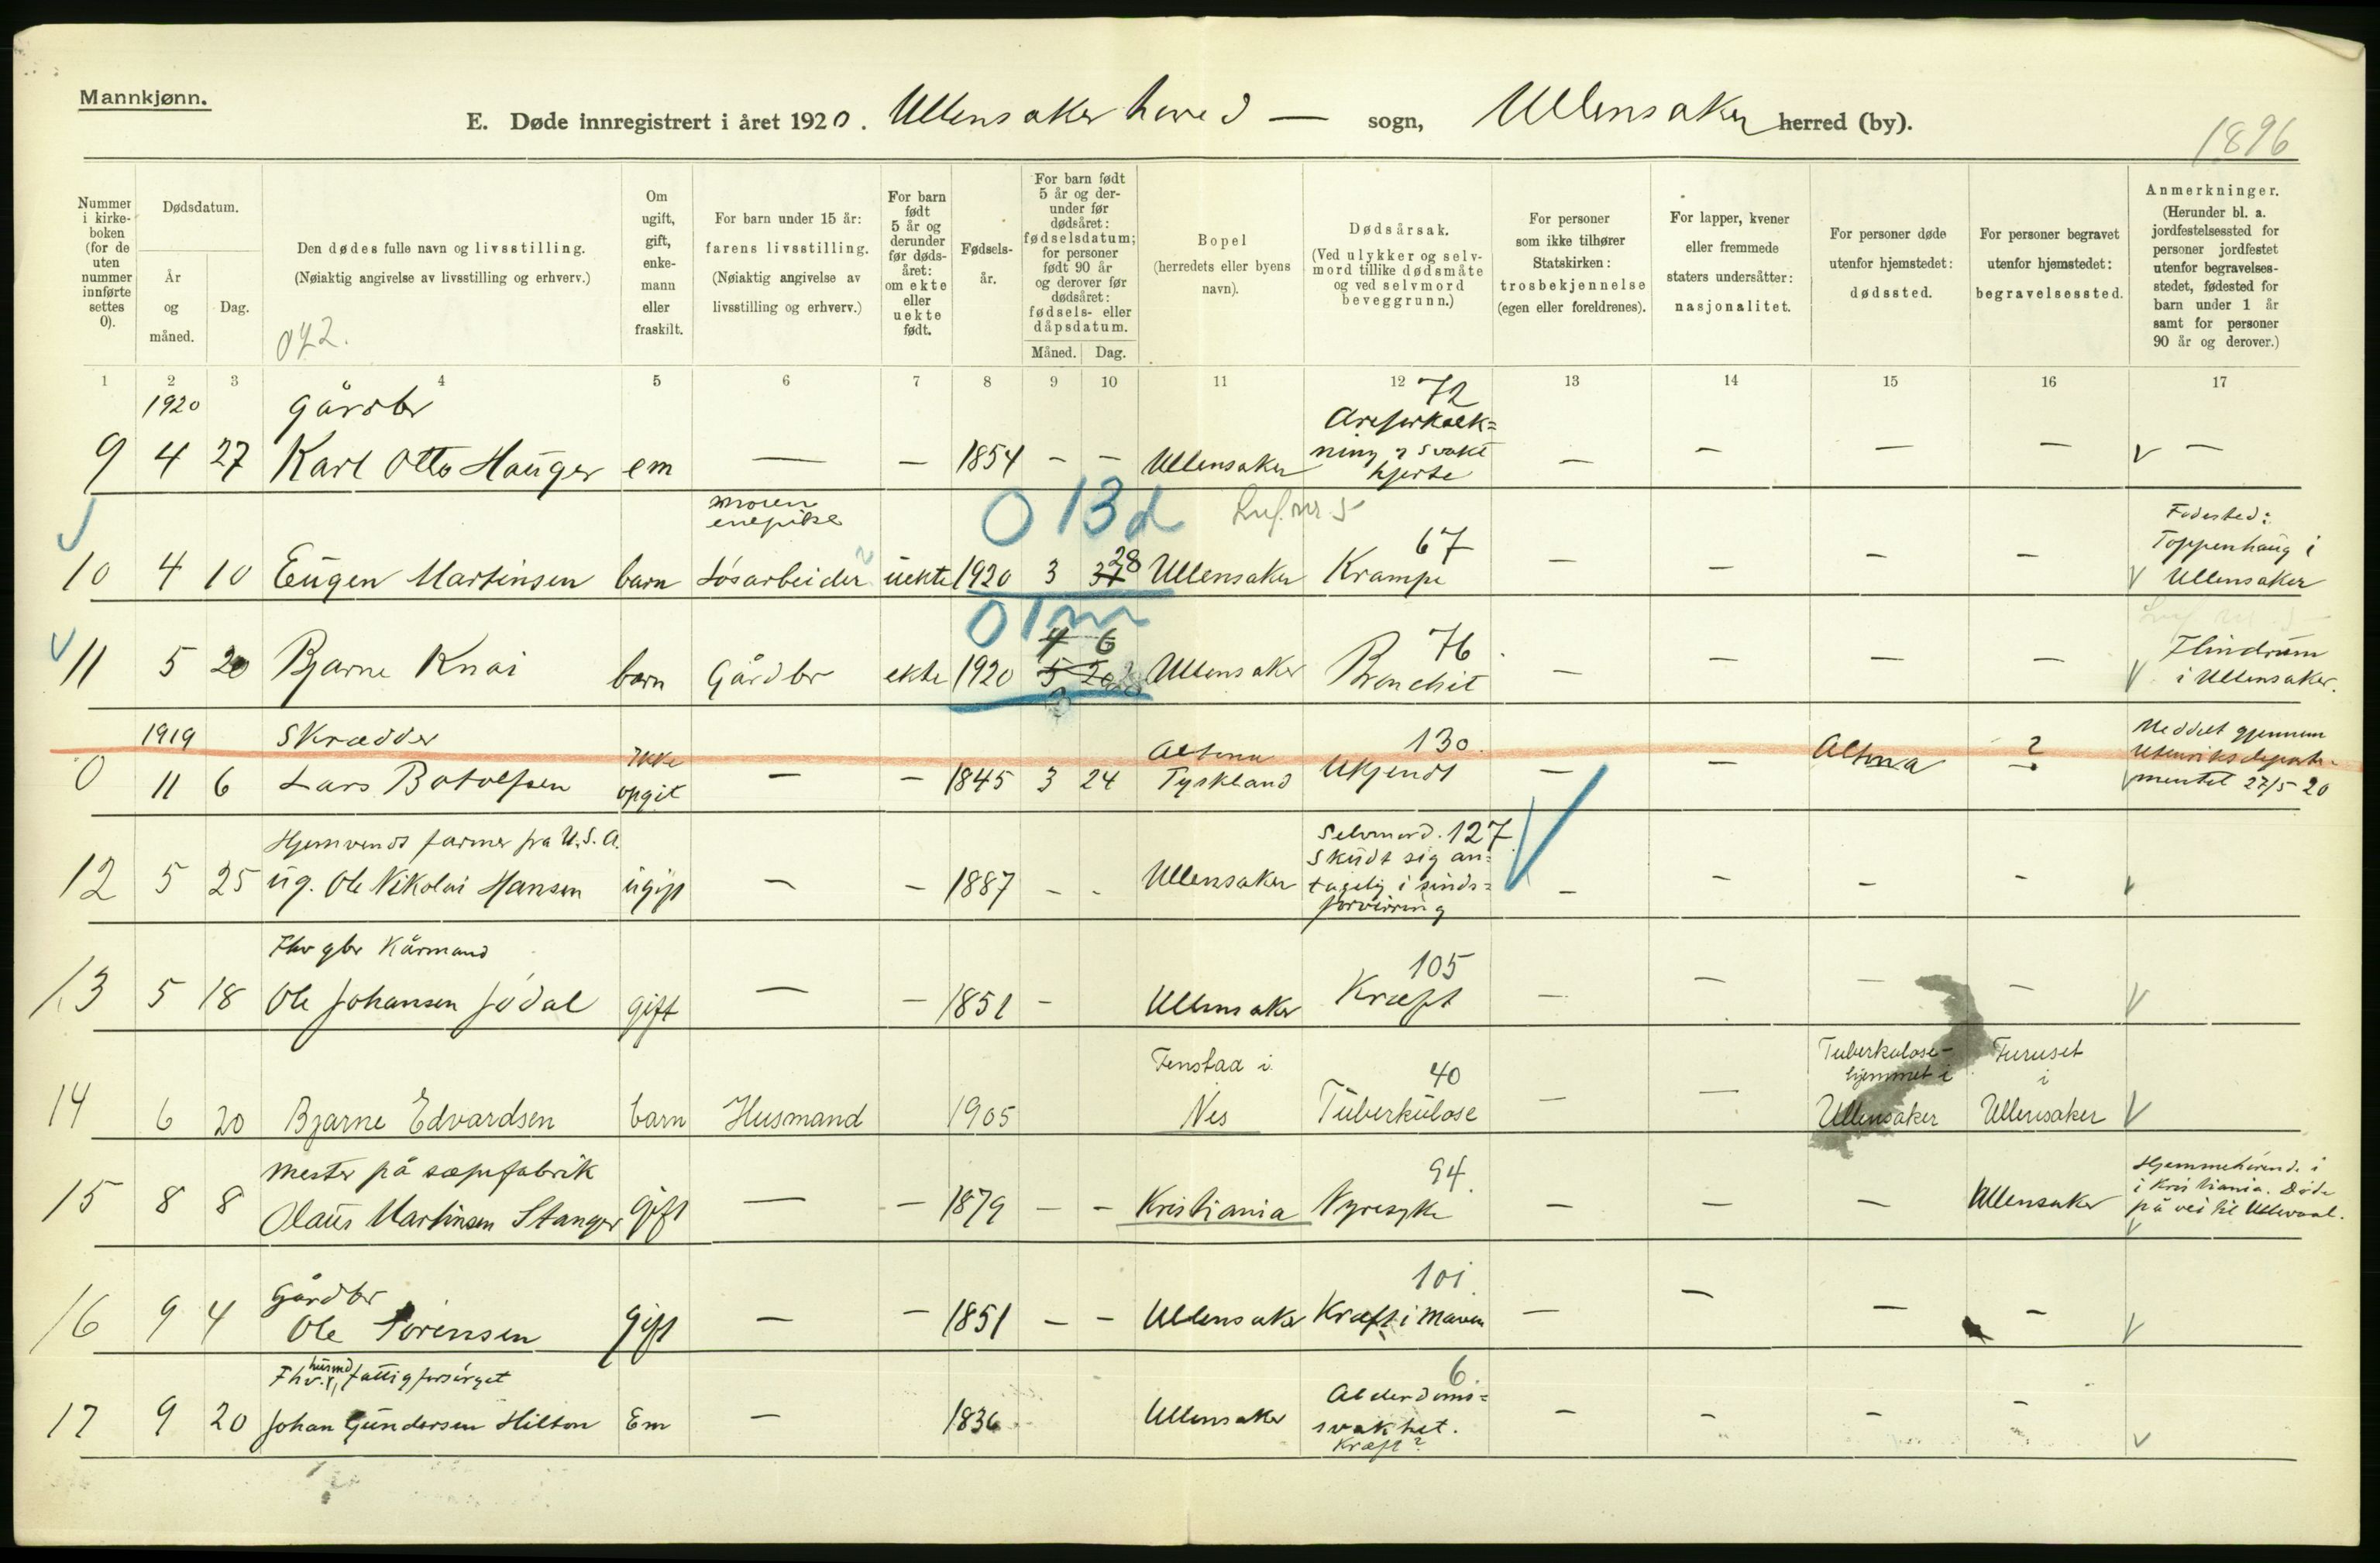 Mannkjønn.
E. Døde innregistrert i året 1920. Ullensaker hoved — sogn, Ullensaker herred (by).
1896
Nummer i kirkeboken (for de uten nummer innførte settes 0).
Dødsdatum.
År og måned.
Dag.
Den dødes fulle navn og livsstilling.
(Nøiaktig angivelse av livsstilling og erhverv.)
Om ugift, gift, enkemann eller fraskilt.
For barn under 15 år: farens livsstilling.
(Nøiaktig angivelse av livsstilling og erhverv.)
For barn født 5 år og derunder før dødsåret: om ekte eller uekte født.
Fødselsår.
For barn født 5 år og derunder før dødsåret: fødselsdatum; for personer født 90 år og derover før dødsåret: fødsels- eller dåpsdatum.
Måned. Dag.
Bopel (herredets eller byens navn).
Dødsårsak.
(Ved ulykker og selvmord tillike dødsmåte og ved selvmord beveggrunn.)
For personer som ikke tilhører Statskirken: trosbekjennelse (egen eller foreldrenes).
For lapper, kvener eller fremmede staters undersåtter: nasjonalitet.
For personer døde utenfor hjemstedet: dødssted.
For personer begravet utenfor hjemstedet: begravelsessted.
Anmerkninger.
(Herunder bl. a. jordfestelsessted for personer jordfestet utenfor begravelsesstedet, fødested for barn under 1 år samt for personer 90 år og derover.)
1 2 3 4 5 6 7 8 9 10 11 12 13 14 15 16 17
1920 Gårdbr 72
Areforkalk=
9 4 27 Karl Otto Hauger em — — 1854 - - Ullensaker ning & svakt hjerte — — — — v —
moren enepike 0 13d 67 Fødested:
Toppenhaug i
10 4 10 Eugen Martinsen barn Løsarbeider uekte 1920 3 28 Ullensaker Krampe — — — — v Ullensaker
0 1m 4 6 76
11 5 20 Bjarne Knai barn Gårdbr ekte 1920 5 20 Ullensaker Bronchit — — — — v Flindrum i Ullensaker.
1919 Skrædder Ikke Altona 130. Altona ? Meddelt gjennem
0 11 6 Lars Botolfsen opgit — — 1845 3 24 Tyskland Ukjendt — — — Utenriksdeparte-
mentet 27/5 20
Hjemvendt farmer fra U.S.A. Selvmord. 127
Skudt sig an=
12 5 25 ug. Ole Nikolai Hansen ugift — — 1887 - - Ullensaker tagelig i sinds=
forvirring — — — —
Fhv gbr Kårmand 105
13 5 18 Ole Johansen Jødal gift — — 1851 - Ullensaker Kræft — — — — v
Fenstad i 40 Tuberkulose- Furuset
hjemmet i i
14 6 20 Bjarne Edvardsen barn Husmand 1905 Nes Tuberkulose — — Ullensaker Ullensaker v
Mester på sæpefabrik 94. Hjemmehørende i
i Kristiania. Døde
15 8 8 Olaus Martinsen Stanger gift — — 1879 - - Kristiania Nyresyke — — — Ullensaker på vei til Ullevaal.
Gårdbr 101
16 9 4 Ole Sørensen gift — — 1851 - - Ullensaker Kræft i Maven — — — — v
Fhv. husmd, fattigforsørget 6.
Alderdoms=
17 9 20 Johan Gundersen Hilton Em — 1836 Ullensaker svakhet. — — — — v
Kræft?